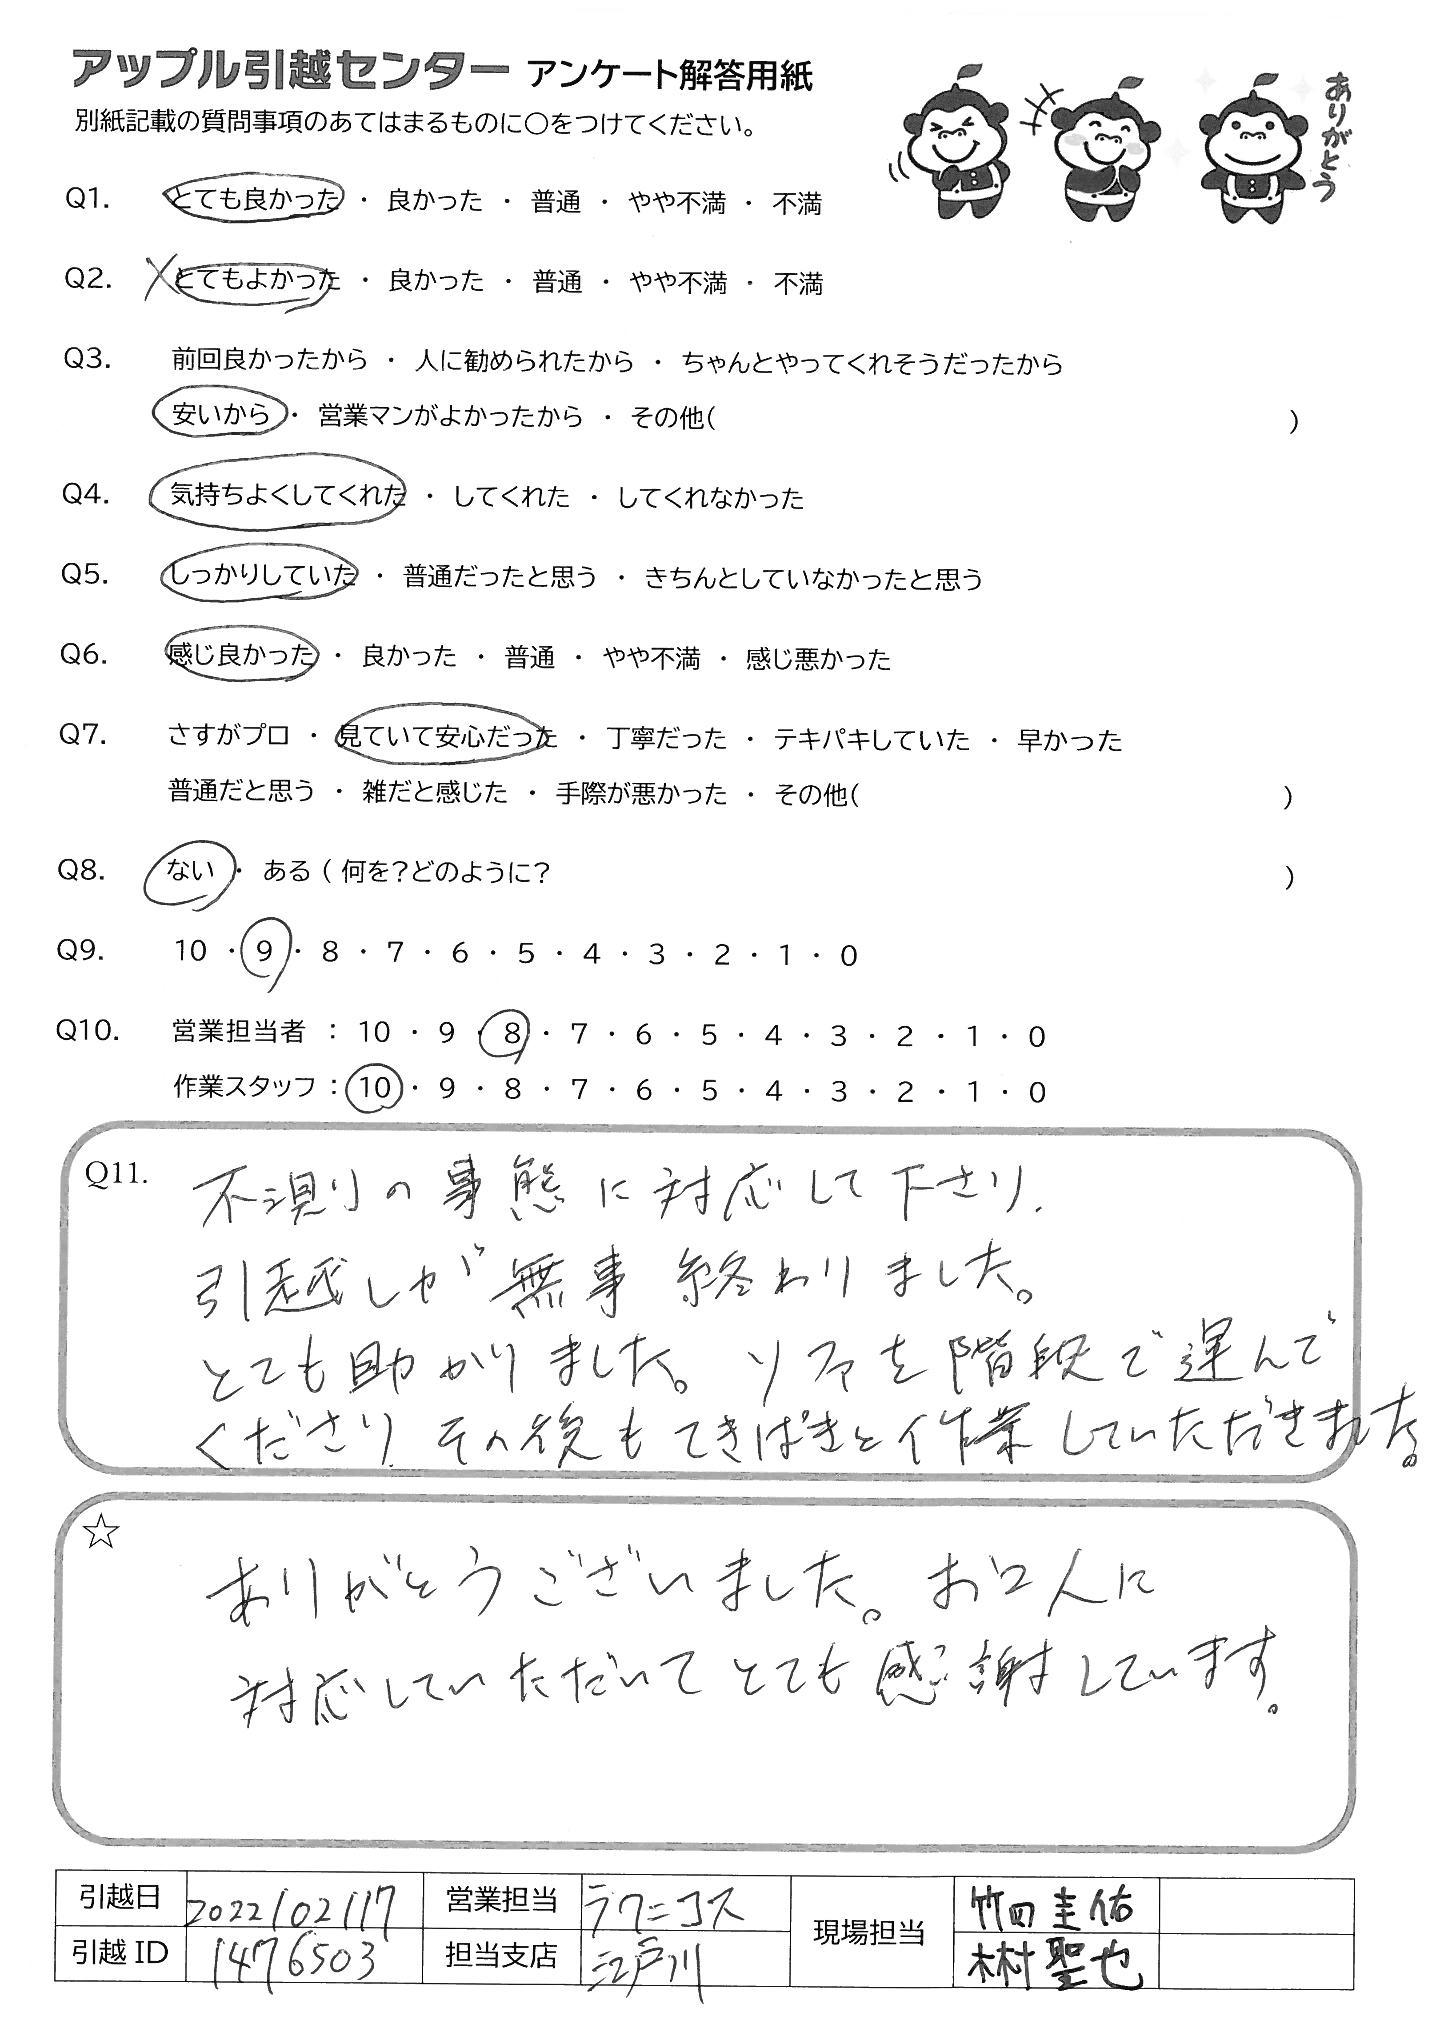 アップル引越センター アンケート解答用紙
別紙記載の質問事項のあてはまるものに○をつけてください。
ありがとう
Q1. とても良かった ・ 良かった ・ 普通 ・ やや不満 ・ 不満
Q2. とてもよかった ・ 良かった ・ 普通 ・ やや不満 ・ 不満
Q3. 前回良かったから ・ 人に勧められたから ・ ちゃんとやってくれそうだったから
安いから ・ 営業マンがよかったから ・ その他( )
Q4. 気持ちよくしてくれた ・ してくれた ・ してくれなかった
Q5. しっかりしていた ・ 普通だったと思う ・ きちんとしていなかったと思う
Q6. 感じ良かった ・ 良かった ・ 普通 ・ やや不満 ・ 感じ悪かった
Q7. さすがプロ ・ 見ていて安心だった ・ 丁寧だった ・ テキパキしていた ・ 早かった
普通だと思う ・ 雑だと感じた ・ 手際が悪かった ・ その他( )
Q8. ない ・ ある ( 何を?どのように? )
Q9. 10 ・ 9 ・ 8 ・ 7 ・ 6 ・ 5 ・ 4 ・ 3 ・ 2 ・ 1 ・ 0
Q10. 営業担当者 : 10 ・ 9 ・ 8 ・ 7 ・ 6 ・ 5 ・ 4 ・ 3 ・ 2 ・ 1 ・ 0
作業スタッフ : 10 ・ 9 ・ 8 ・ 7 ・ 6 ・ 5 ・ 4 ・ 3 ・ 2 ・ 1 ・ 0
Q11. 不測りの事態に対応して下さり、
引越しが無事終わりました。
とても助かりました。ソファを階段で運んで
くださり、その後もてきぱきと作業していただきました。
☆
ありがとうございました。お2人に
対応していただいてとても感謝しています。
引越日 2022/02/17 営業担当 ラクニコス 現場担当 竹田圭佑
引越ID 1476503 担当支店 江戸川 木村聖也